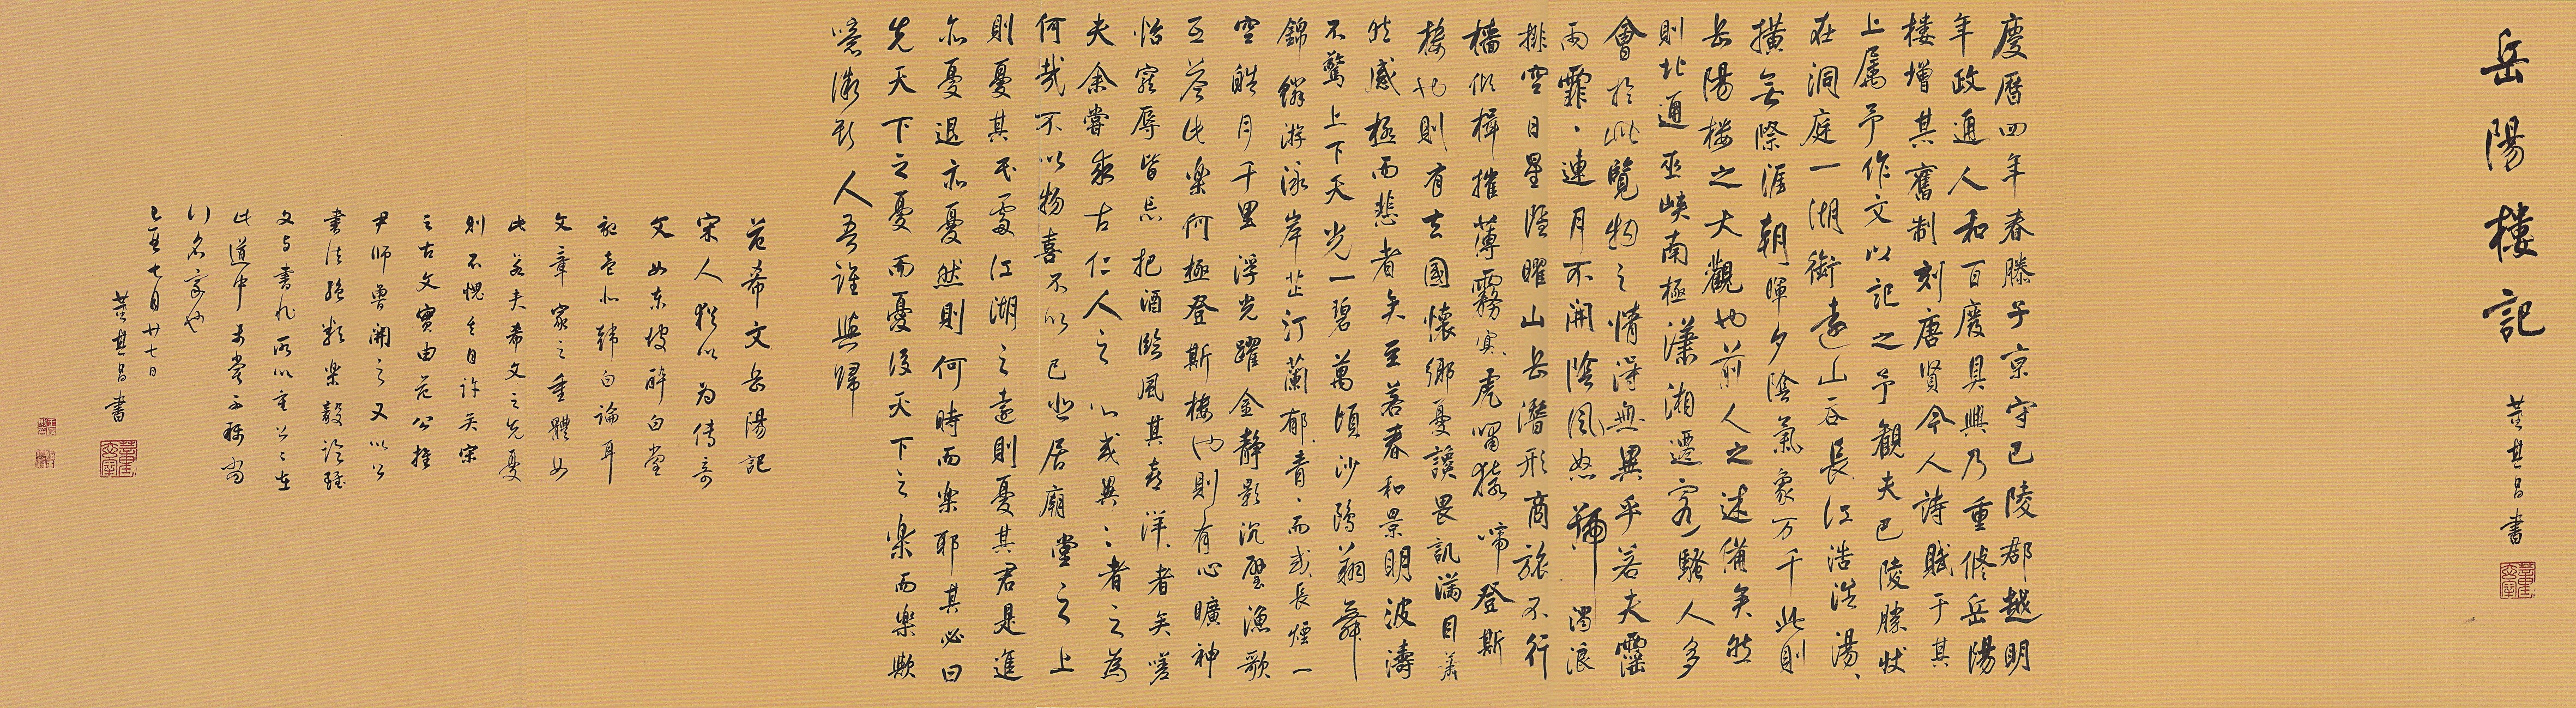 岳陽楼記
董其昌書
慶曆四年春滕子京守巴陵郡越明
年政通人和百廢具興乃重修岳陽
樓增其舊制刻唐賢今人詩賦于其
上属予作文以記之予觀夫巴陵勝狀
在洞庭一湖銜遠山吞長江浩浩湯、
橫無際涯朝暉夕陰氣象万千此則
岳陽楼之大觀也前人之述備矣然
則北通巫峽南極瀟湘遷客騷人多
會於此覽物之情得無異乎若夫霪
雨霏、連月不開陰風怒號濁浪
排空日星隱曜山岳潛形商旅不行
檣傾楫摧薄霧冥、虎嘯猿啼登斯
楼也則有去國懷鄉憂讒畏譏滿目蕭
然感極而悲者矣至若春和景明波濤
不驚上下天光一碧萬頃沙鷗翔舞
錦鱗游泳岸芷汀蘭郁、青、而或長煙一
空皓月千里浮光躍金静影沉璧漁歌
互答此樂何極登斯楼也則有心曠神
怡寵辱皆忘把酒臨風其喜洋、者矣嗟
夫余嘗求古仁人之心或異二者之為
何哉不以物喜不以己悲居廟堂之上
則憂其民處江湖之遠則憂其君是進
亦憂退亦憂然則何時而樂耶其必曰
先天下之憂而憂後天下之樂而樂歟
噫微斯人吾誰與歸
范希文岳陽記
宋人猶以為傳奇
文如東坡醉白堂
記是以韓白論耳
文章家之重體如
此若夫希文之先憂
則不愧其自許矣宋
之古文實由范公推
尹師魯開之又以公
書法絕類樂毅論
文与書札所以重公、在
此道中未嘗不稱當
行名家也
乙亥七月廿七日
董其昌書